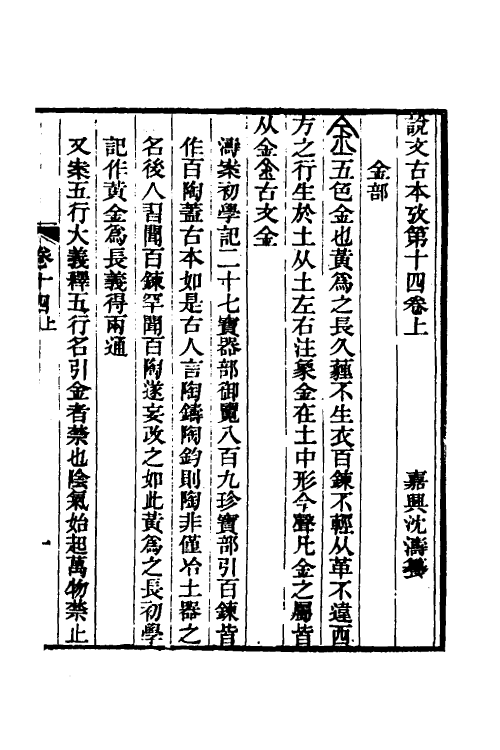 說文古本攷第十四卷上
嘉興沈濤纂
金部
金五色金也黃爲之長久薶不生衣百鍊不輕从革不違西
方之行生於土从土左右注象金在土中形今聲凡金之屬皆
从金金古文金
濤案初學記二十七寶器部御覽八百九珍寶部引百鍊皆
作百陶蓋古本如是古人言陶鑄陶鈞則陶非僅冶土器之
名後人習聞百鍊罕聞百陶遂妄改之如此黃爲之長初學
記作黃金爲長義得兩通
又案五行大義釋五行名引金者禁也陰氣始起萬物禁止
卷十四上
一